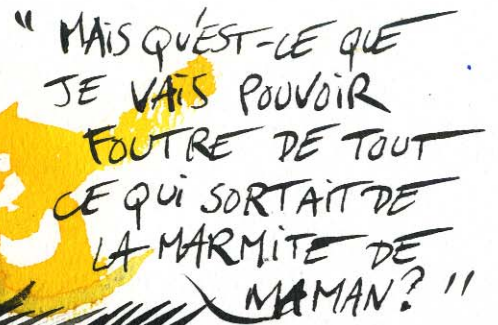 " MAIS QU'EST-CE QUE
JE VAIS POUVOIR
FOUTRE DE TOUT
CE QUI SORTAIT DE
LA MARMITE DE
MAMAN? "